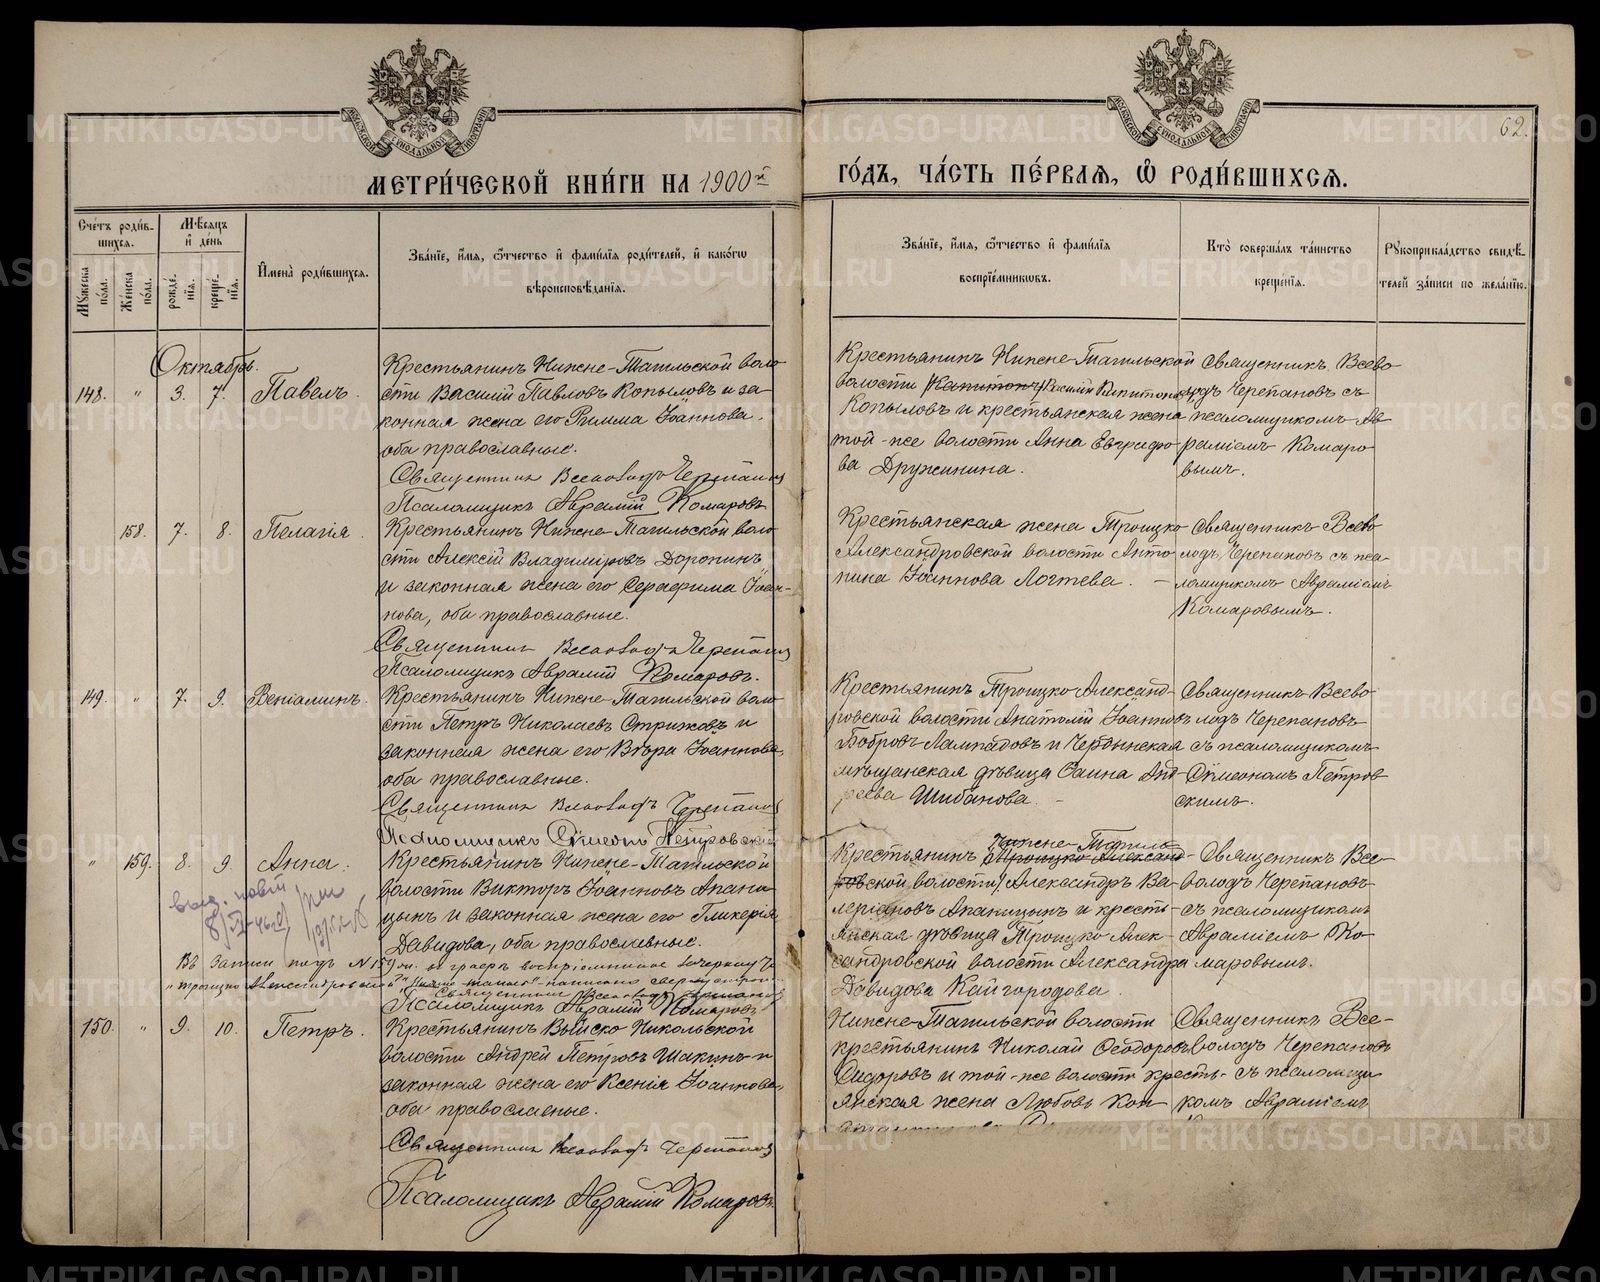 62.
МЕТРИ́ЧЕСКОЙ КНИ́ГИ НА 1900й ГО́ДЪ, ЧА́СТЬ ПЕ́РВАЯ, Ѿ РОДИ́ВШИХСЯ.
Счетъ роди́вшихся.
Му́жеска по́ла.
Же́нска по́ла.
Мѣ́сяцъ и де́нь
рожде́нія.
креще́нія.
Имена̀ роди́вшихся.
Зва́ніе, и́мя, ѻ҆́тчество и фами́лія роди́телей, и како́гѡ
вѣроисповѣ́данія.
Зва́ніе, и́мя, ѻ҆́тчество и фами́лія
воспріе́мникѡвъ.
Кто̀ соверша́лъ та́инство
креще́нія.
Рукоприкла́дство свидѣ́-
телей за́писи по жела́нію.
Октябрь.
148. " 3. 7. Павелъ.
Крестьянинъ Нижне-Тагильской воло
сти Василій Павловъ Копыловъ и за-
конная жена его Римма Іоаннова,
оба православные.
Священникъ Всеволодъ Черепановъ
Псаломщикъ Аврамій Комаровъ
Крестьянинъ Нижне-Тагильской
волости (Капитонъ) Василій Капитоновъ
Копыловъ и крестьянская жена
той-же волости Анна
Дружинина.
Священникъ Всево
лодъ Черепановъ съ
псаломщикомъ Ав
раміемъ Комаро
вымъ.
158. 7. 8. Пелагія.
Крестьянинъ Нижне-Тагильской воло
сти Алексій Владиміровъ Доронинъ
и законная жена его Серафима Іоан-
нова, оба православные.
Священникъ Всеволодъ Черепановъ
Псаломщикъ Аврамій Комаровъ.
Крестьянская жена Троицко
Александровской волости Анто
нина Іоаннова Логтева. –
Священникъ Всево
лодъ Черепановъ съ пса-
ломщикомъ Авраміемъ
Комаровымъ.
149. " 7. 9. Веніаминъ.
Крестьянинъ Нижне-Тагильской воло
сти Петръ Николаевъ Стрижовъ и
законная жена его Вѣра Іоаннова,
оба православные.
Священникъ Всеволодъ Черепановъ
Псаломщикъ Симеонъ Петровскій
Крестьянинъ Троицко-Александ-
ровской волости Анатолій Іоанновъ
Бобровъ-Лампадовъ и Чердынская
мѣщанская дѣвица Анд
реева Шибанова. –
Священникъ Всево
лодъ Черепановъ
съ псаломщикомъ
Симеономъ Петров
скимъ.
" 159. 8. 9. Анна.
Крестьянинъ Нижне-Тагильской
волости Викторъ Іоанновъ Апани
цынъ и законная жена его Гликерія
Давидова, оба православные.
Въ записи подъ №159 въ графѣ
Священникъ Всеволодъ Черепановъ
Псаломщикъ Аврамій Комаровъ
Нижне-Тагиль
Крестьянинъ Троицко-Александ-
ровской волости Александръ Ва-
леріановъ Апаницынъ и кресть-
янская дѣвица Троицко-Алек-
сандровской волости Александра
Давидова Кайгородова
Священникъ Все-
володъ Черепановъ
съ псаломщикомъ
Авраміемъ Ко
маровымъ.
150. " 9. 10. Петръ.
Крестьянинъ Выйско-Никольской
волости Андрей Петровъ Шакинъ и
законная жена его Ксенія Іоаннова,
оба православные.
Священникъ Всеволодъ Черепановъ
Псаломщикъ Аврамій Комаровъ.
Нижне-Тагильской волости
крестьянинъ Николай Ѳеодоровъ
Сидоровъ и той-же волости кресть-
янская жена Любовь Кон
Священникъ Все-
володъ Черепановъ
съ псаломщи
комъ Авраміемъ
METRIKI.GASO-URAL.RU